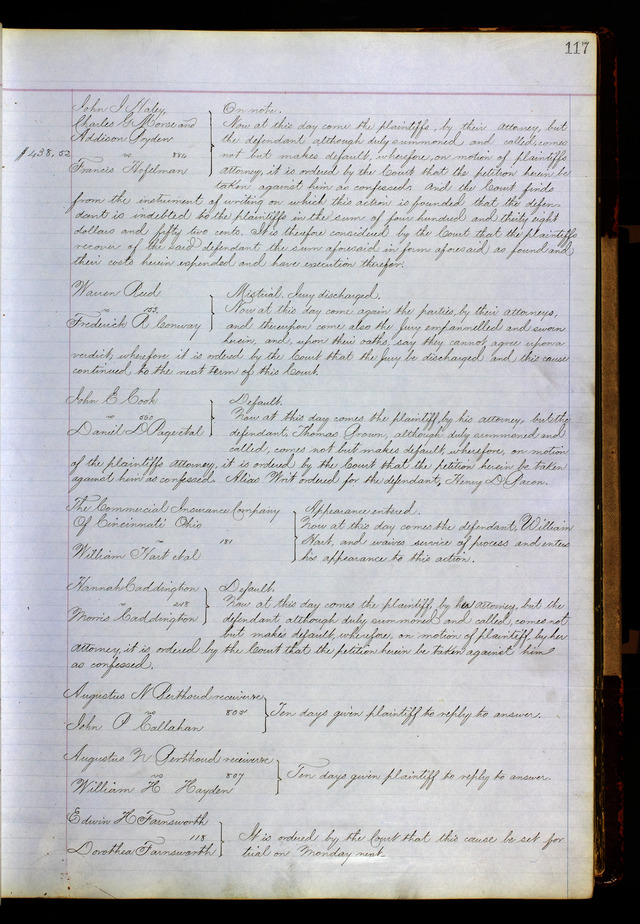 117
John J Haley,
Charles G Morse and
Addison Ryden
vs 884
Francis Hoffelman
$438.52
On note.
Now at this day come the plaintiffs, by their attorney, but
the defendant although duly summoned and called, comes
not but makes default, wherefore, on motion of plaintiffs
attorney, it is ordered by the Court that the petition herein be
taken against him as confessed. And the Court finds
from the instrument of writing on which this action is founded, that the defen-
dant is indebted to the plaintiffs in the sum of four hundred and thirty eight
dollars and fifty two cents. It is therefore considered by the Court that the plaintiffs
recover of the said defendant the sum aforesaid in form aforesaid as found and
their costs herein expended and have execution therefor.
Warren Reed
vs 153.
Frederick R Conway
Mistrial. Jury discharged.
Now at this day come again the parties, by their attorneys,
and thereupon come also the Jury empannelled and sworn
herein, and, upon their oaths, say they cannot agree upon a
verdict, wherefore it is ordered by the Court that the Jury be discharged and this cause
continued to the next term of this Court.
John E Cook
vs
Daniel D Page et al
Default.
Now at this day comes the plaintiff, by his attorney, but the
defendant, Thomas Brown, although duly summoned and
called, comes not but makes default, wherefore, on motion
of the plaintiffs attorney, it is ordered by the Court that the petition herein be taken
against him as confessed. Alias Writ ordered for the defendant, Henry D. Bacon.
The Commercial Insurance Company
Of Cincinnati Ohio
vs 181
William Hart et al
Appearance entered.
Now at this day comes the defendant, William
Hart, and waives service of process and enters
his appearance to this action.
Hannah Caddington
vs 218
Morris Caddington
Default.
Now at this day comes the plaintiff, by her attorney, but the
defendant, although duly summoned and called, comes not
but makes default, wherefore, on motion of plaintiff, by her
attorney, it is ordered by the Court that the petition herein be taken against him
as confessed.
Augustus N Perthoud receiver &c
vs 805
John P Callahan
Ten days given plaintiff to reply to answer.
Augustus N Perthoud receiver &c
vs 807
William H Hayden
Ten days given plaintiff to reply to answer.
Edwin H Farnsworth
118
Dorothea Farnsworth
It is ordered by the Court that this cause be set for
trial on Monday next.